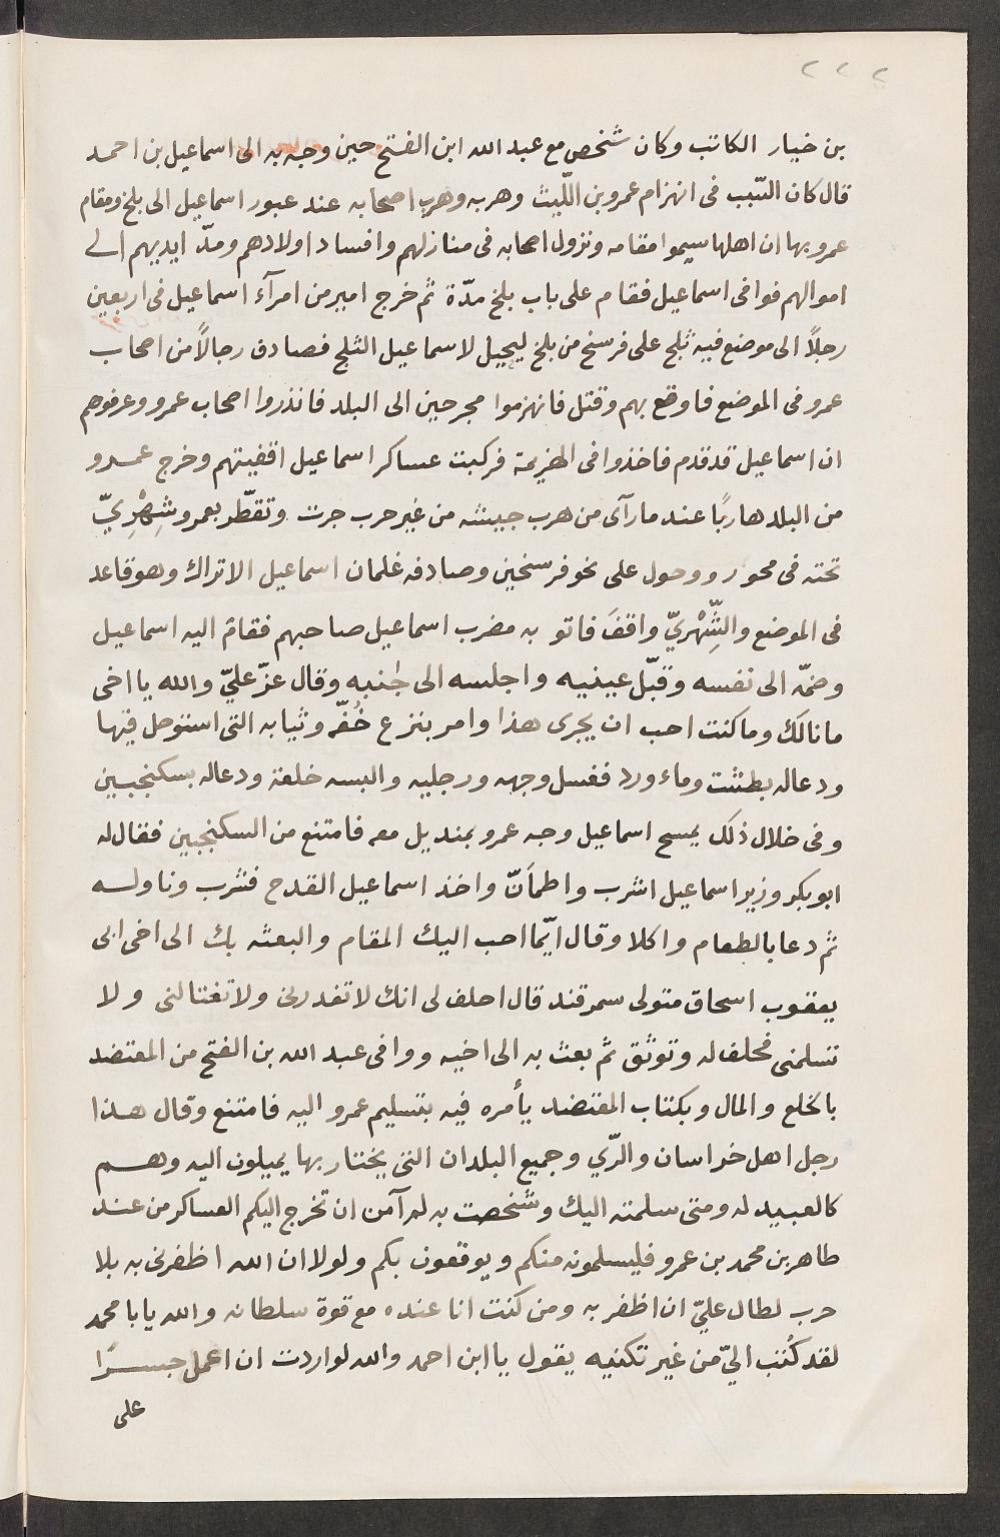 ٢٢٢
بن خيار الكاتب وكان شخص مع عبد الله ابن الفتح حين وجه به الى اسماعيل بن احمد
قال كان السّبب فى انهزام عمرو بن اللّيث وهربه وهرب اصحابه عند عبور اسماعيل الى بلخ ومقام
عمرو بها ان اهلها سيموا مقامه ونزول اصحابه فى منازلهم وافساد اولادهم ومدّ ايديهم الى
اموالهم فوافى اسماعيل فقام على باب بلخ مدّة ثم خرج امير من امرآء اسماعيل فى اربعين
رجلاً الى موضع فيه ثلج على فرسخ من بلخ ليحيل لاسماعيل الثلج فصادف رجالاً من اصحاب
عمرو فى الموضع فاوقع بهم وقتل فانهزموا مجرحين الى البلد فانذروا اصحاب عمرو وعرفوهم
ان اسماعيل قد قدم فاخذوا فى الهزيمة فركبت عساكر اسماعيل اقفيتهم وخرج عمرو
من البلد هاربًا عند ما رآى من هرب جيشه من غير حرب جرت وتقطّر بعمرو شِهْرِيّ
تحته فى محور ووحول على نحو فرسخين وصادفه غلمان اسماعيل الاتراك وهو قاعد
فى الموضع والشِّهْريّ واقفَ فاتو به مضرب اسماعيل صاحبهم فقام اليه اسماعيل
وضمّه الى نفسه وقبّل عينيه واجلسه الى جنبه وقال عزّ عليّ والله يا اخى
ما نالك وما كنت احب ان يجرى هذا وامر بنزع خُفّه وثيابه التى استوحل فيها
ودعا له بطشت وماء ورد فغسل وجهه ورجليه والبسه خلعة ودعا له بسكنجبين
وفى خلال ذلك يمسح اسماعيل وجه عمرو بمنديل معه فامتنع من السكنجبين فقال له
ابو بكر وزير اسماعيل اشرب واطمأنّ واخذ اسماعيل القدح فشرب وناوله
ثم دعا بالطعام واكلا وقال ايّما احب اليك المقام والبعثه بك الى اخى ابى
يعقوب اسحاق متولى سمرقند قال احلف لى انك لا تغدرنى ولا تغتالنى ولا
تسلمنى فحلف له وتوثق ثم بعث به الى اخيه ووافى عبد الله بن الفتح من المعتضد
بالخلع والمال وبكتاب المعتضد يأمره فيه بتسليم عمرو اليه فامتنع وقال هذا
رجل اهل خراسان والرّي وجميع البلدان التى يختار بها يميلون اليه وهم
كالعبيد له ومتى سلمته اليك وشخصت به لم آمن ان تخرج اليكم العساكر من عند
طاهر بن محمد بن عمرو فليسلمونه منكم ويوقعون بكم ولولا ان الله اظفرنى به بلا
حرب لطال عليّ ان اظفر به ومن كنت انا عنده مع قوة سلطانه والله يا با محمد
لقد كُتب اليّ من غير تكنيه يقول يا ابن احمد والله لو اردت ان اعمل جسرًا
على